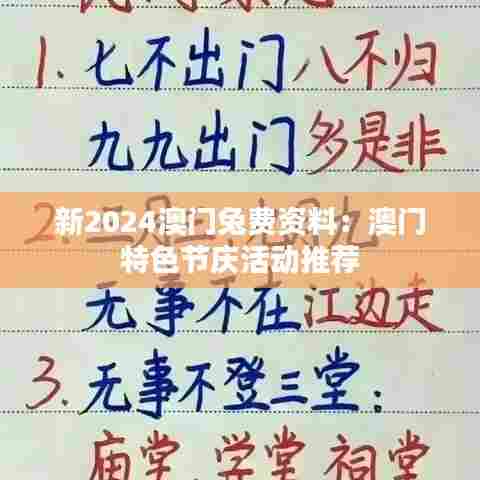 1. 七不出门八不归
九九出门多是非
2.
新2024澳门兔费资料：澳门
特色节庆活动推荐
无事不在江边走
3. 无事不登三堂：
庙堂.学堂.祠堂